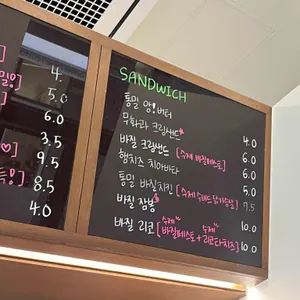 4.
5.0
6.0
3.5
9.5
8.5
4.0
SANDWICH
통밀 앙!버터 4.0
무화과 크림샌드 6.0
바질 크림샌드 [수제 바질페스토] 6.0
햄치즈 치아바타 5.0
통밀 바질치킨 9.5
바질 잠봉 10.0
바질 리코 [수제 바질페스토 + 수제 리코타치즈] 10.0